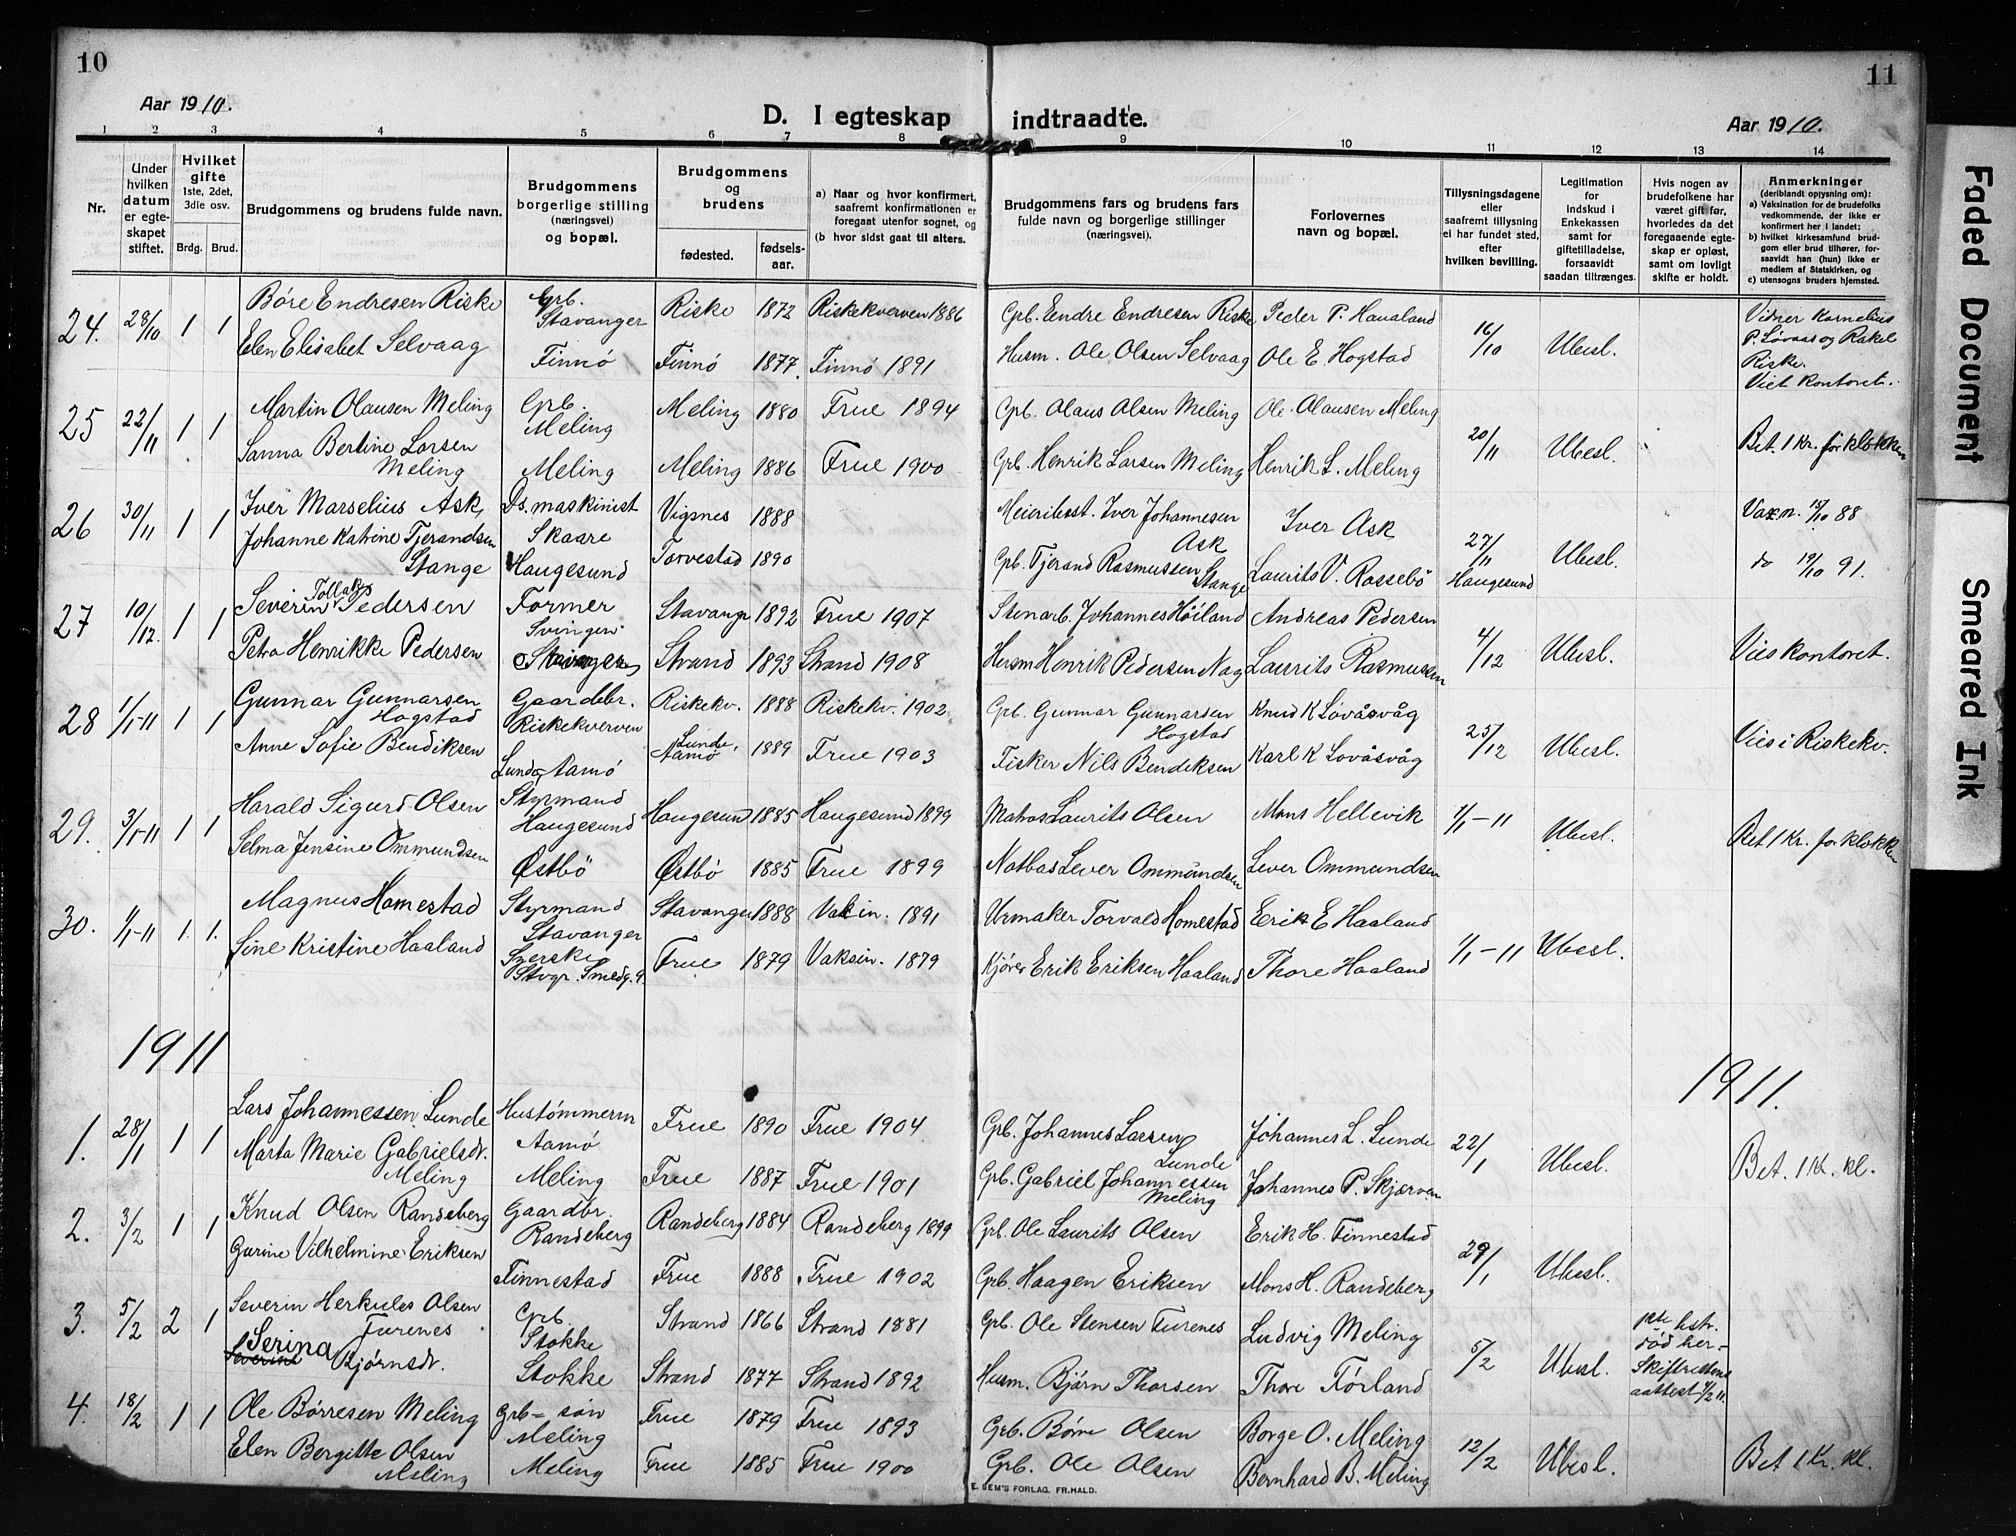 10
11
Aar 1910.
D. I egteskap indtraadte.
Aar 1910.
1 2 3 4 5 6 7 8 9 10 11 12 13 14
Nr.
Under hvilken datum er egteskapet stiftet.
Hvilket gifte
1ste, 2det, 3die osv.
Brdg. Brud.
Brudgommens og brudens fulde navn.
Brudgommens borgerlige stilling (næringsvei) og bopæl.
Brudgommens og brudens
fødested. fødselsaar.
a) Naar og hvor konfirmert, saafremt konfirmationen er foregaat utenfor sognet, og
(b hvor sidst gaat til alters.
Brudgommens fars og brudens fars fulde navn og borgerlige stillinger (næringsvei).
Forlovernes navn og bopæl.
Tillysningsdagene eller saafremt tillysning ei har fundet sted, efter hvilken bevilling.
Legitimation for indskud i Enkekassen samt for giftetilladelse, forsaavidt saadan tiltrænges.
Hvis nogen av brudefolkene har været gift før, hvorledes da det foregaaende egteskap er opløst, samt om lovligt skifte er holdt.
Anmerkninger
(deriblandt opysning om):
a) Vaksination for de brudefolks vedkommende, der ikke er konfirmert her i landet;
b) hvilket kirkesamfund brudgom eller brud tilhører, forsaavidt han (hun) ikke er medlem af Statskirken, og
c) utensogns bruders hjemsted.
24. 28/10 1 1 Børe Endresen Riske Grb. Stavanger Riske 1872 Riskekverven 1886 Grb. Endre Endresen Riske Peder P. Haualand 16/10 Ubesl. Vidner Kornelius P. Løvaas og Rakel Riske. Viet kontoret.
Elen Elisabet Selvaag Finnø Finnø 1877. Finnø 1891 Husm. Ole Olsen Selvaag Ole E. Hogstad
25 22/11 1 1 Martin Olausen Meling Grb. Meling Meling 1880 Frue 1894 Grb. Olaus Olsen Meling Ole Olausen Meling 20/11 Ubesl. Bet. 1 Kr. for klokken
Sanna Bertine Larsen Meling Meling Meling 1886 Frue 1900 Grb. Henrik Larsen Meling Henrik L. Meling
26 30/11 1 1 Iver Marselius Ask, Ds. maskinist Skaare Vigsnes 1888 Iver Johannesen Ask Iver Ask 27/11 Haugesund Ubesl. 15/10 88
Johanne Katrine Tjerandsen Stange Haugesund Torvestad 1890 Grb. Tjerand Rasmussen Stange Laurits V. Rossebø do 19/10 91.
27 10/12. 1 1 Severin Pedersen Former Svingen Stavangr 1892 Frue 1907 Stenarb. Johannes Høiland Andreas Pedersen 4/12 Ubesl. Vies kontoret.
Petra Henrikke Pedersen Strand 1893 Strand 1908 Husm Henrik Pedersen Nag Laurits Rasmussen
28 1/1-11 1 1 Gunnar Gunnarsen Hogstad Gaardbr. Riskekverven Riskekv. 1888 Riskekv. 1902 Grb. Gunnar Gunnarsen Hogstad Knud K Løvåsvåg 25/12 Ubesl. Vies i Riskekv.
Anne Sofie Bendiksen Lunde, Aamø Lunde, Aamø 1889 Frue 1903 Fisker Nils Bendiksen Karl K Lovåsvåg
29. 3/1-11 1 1 Harald Sigurd Olsen Styrmand Haugesund Haugesund 1885 Haugesund 1899 Matros Laurits Olsen Mons Hellevik 1/1-11 Ubesl. Bet 1 Kr. for klokken
Selma Jensine Ommundsen Østbø Østbø 1885 Frue 1899 Lever Ommundsen Lever Ommundsen
30. 1/1-11 1. 1. Magnus Homestad Styrmand Stavanger Stavanger 1888 Vakin. 1891 Urmaker Torvald Homestad Eerik E Haaland 1/1-11 Ubesl.
Sine Kristine Haaland Syerske Stvgr. Smedg. 9. Frue 1879 Vaksin. 1879 Kjører Erik Eriksen Haaland Thore Haaland
1911
1911.
1. 28/1 1 1 Lars Johannessen Lunde Hustømmermn Aamø Frue 1890 Frue 1904 Grb. Johannes Larsen Lunde Johannes L. Lunde 22/1 Ubesl. Bet. 1 Kr. kl.
Marta Marie Gabrielsdr. Meling Meling Frue 1887 Frue 1901 Grb. Gabriel Johannessen Meling Johannes P. Skjærven
2. 3/2 1 1 Knud Olsen Randeberg Gaardbr. Randeberg Randeberg 1884 Randeberg 1899 Grb. Ole Laurits Olsen Erik H. Finnestad 29/1 Ubesl.
Gurine Vilhelmine Eriksen Finnestad Frue 1888 Frue 1902 Grb. Haagen Eriksen Mons H. Randeberg
3. 5/2 2 1 Severin Herkules Olsen Furenes Grb. Stokke Strand 1866 Strand 1881 Grb. Ole Stensen Furenes Ludvig Meling 5/2 Ubesl. 1ste hstr. død her- Skifterettens aattest 4/2 11.
Serina Severine Bjørnsdr. Stokke Strand 1877 Strand 1892 Husm. Bjørn Thorsen Thore Førland
4. 18/2 1 1 Ole Børresen Meling Grb-søn Meling Frue 1879 Frue 1893 Grb. Børre Olsen Borge O. Meling 12/2 Ubesl. Bet 1 Kr. kl.
Elen Bergitte Olsen Meling Meling Frue 1885 Frue 1900 Grb. Ole Olsen Bernhard B. Meling
E. SEM'S FORLAG, FR.HALD.
Faded Document
Smeared Ink